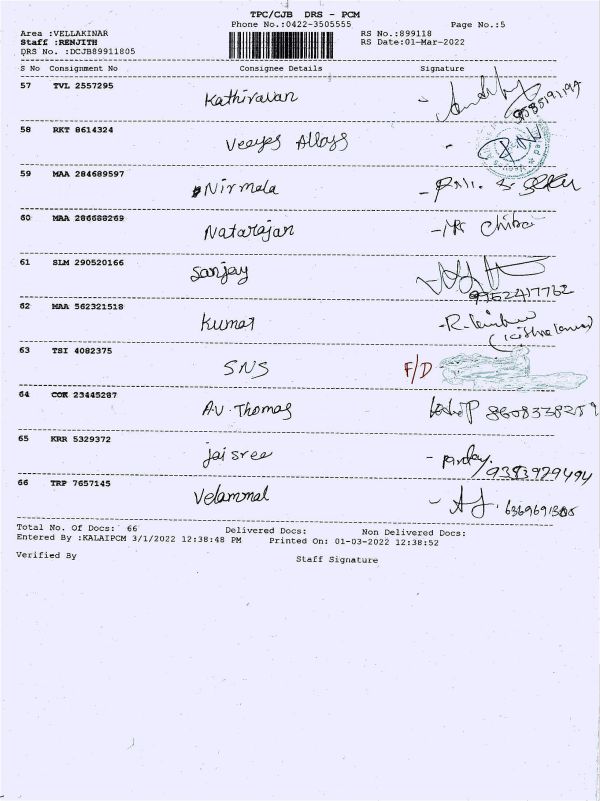 TPC/CJB DRS - PCM
Phone No.:0422-3505555 Page No.:5
Area :VELLAKINAR RS No.:899118
Staff :RENJITH RS Date:01-Mar-2022
DRS No. :DCJB89911805
S No Consignment No Consignee Details Signature
57 TVL 2557295 Kathiravan
58 RKT 8614324 Veeyes Alloys
59 MAA 284689597 Nirmala
60 MAA 286688269 Natarajan
61 SLM 290520166 Sanjay
62 MAA 562321518 Kumar
63 TSI 4082375 SNS F/D
64 COK 23445287 A.V. Thomas 8608338259
65 KRR 5329372 Jai sree 9383929494
66 TRP 7657145 Velammal
Total No. Of Docs: 66 Delivered Docs: Non Delivered Docs:
Entered By :KALAIPCM 3/1/2022 12:38:48 PM Printed On: 01-03-2022 12:38:52
Verified By Staff Signature